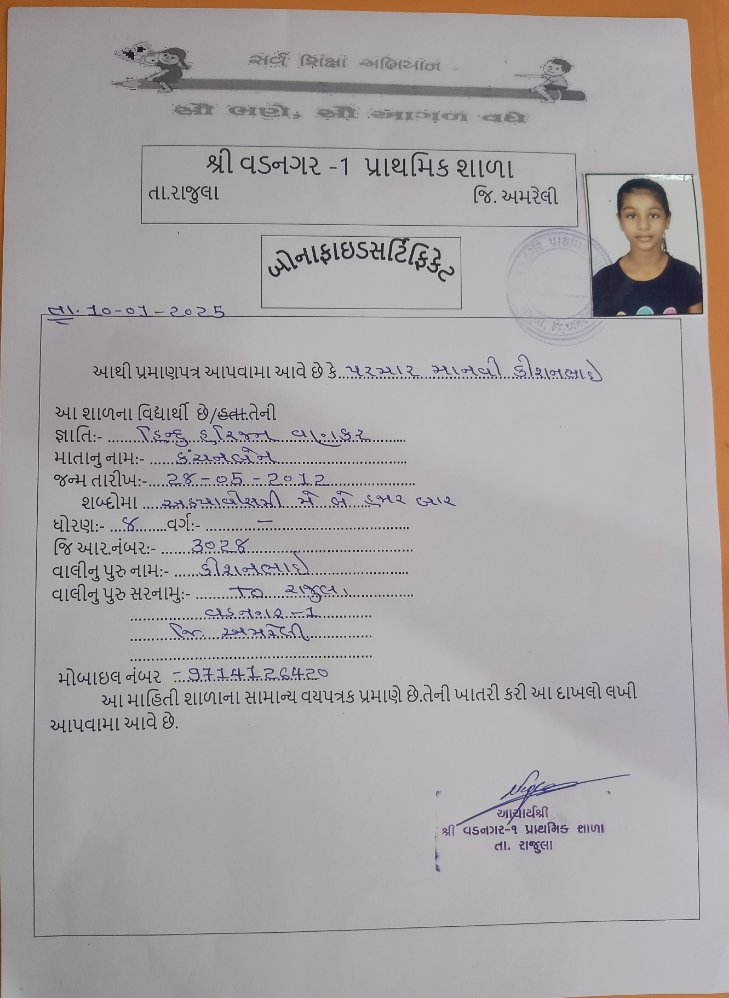 સર્વ શિક્ષા અભિયાન
સૌ ભણે, સૌ આગળ વધે
શ્રી વડનગર -1 પ્રાથમિક શાળા
તા.રાજુલા જિ. અમરેલી
બોનાફાઇડસર્ટિફિકેટ
તા. 10-01-2025
આથી પ્રમાણપત્ર આપવામા આવે છે કે. પરમાર માનવી કીશનભાઇ
આ શાળના વિદ્યાર્થી છે/હતા.તેની
જ્ઞાતિ:- હિન્દુ હરિજન વણકર
માતાનુ નામ:- કંચનબેન
જન્મ તારીખ:- 28-05-2012
શબ્દોમા અઠયાવીસમી મે બે હજાર બાર
ધોરણ:- ૪ વર્ગ:- –
જિ આર.નંબર:- 3028
વાલીનુ પુરુ નામ:- કીશનભાઇ
વાલીનુ પુરુ સરનામુ:- રાજુલા
વડનગર-1
જિ અમરેલી
મોબાઇલ નંબર - 9714126420
આ માહિતી શાળાના સામાન્ય વયપત્રક પ્રમાણે છે.તેની ખાતરી કરી આ દાખલો લખી
આપવામા આવે છે.
આચાર્યશ્રી
શ્રી વડનગર-૧ પ્રાથમિક શાળા
તા. રાજુલા